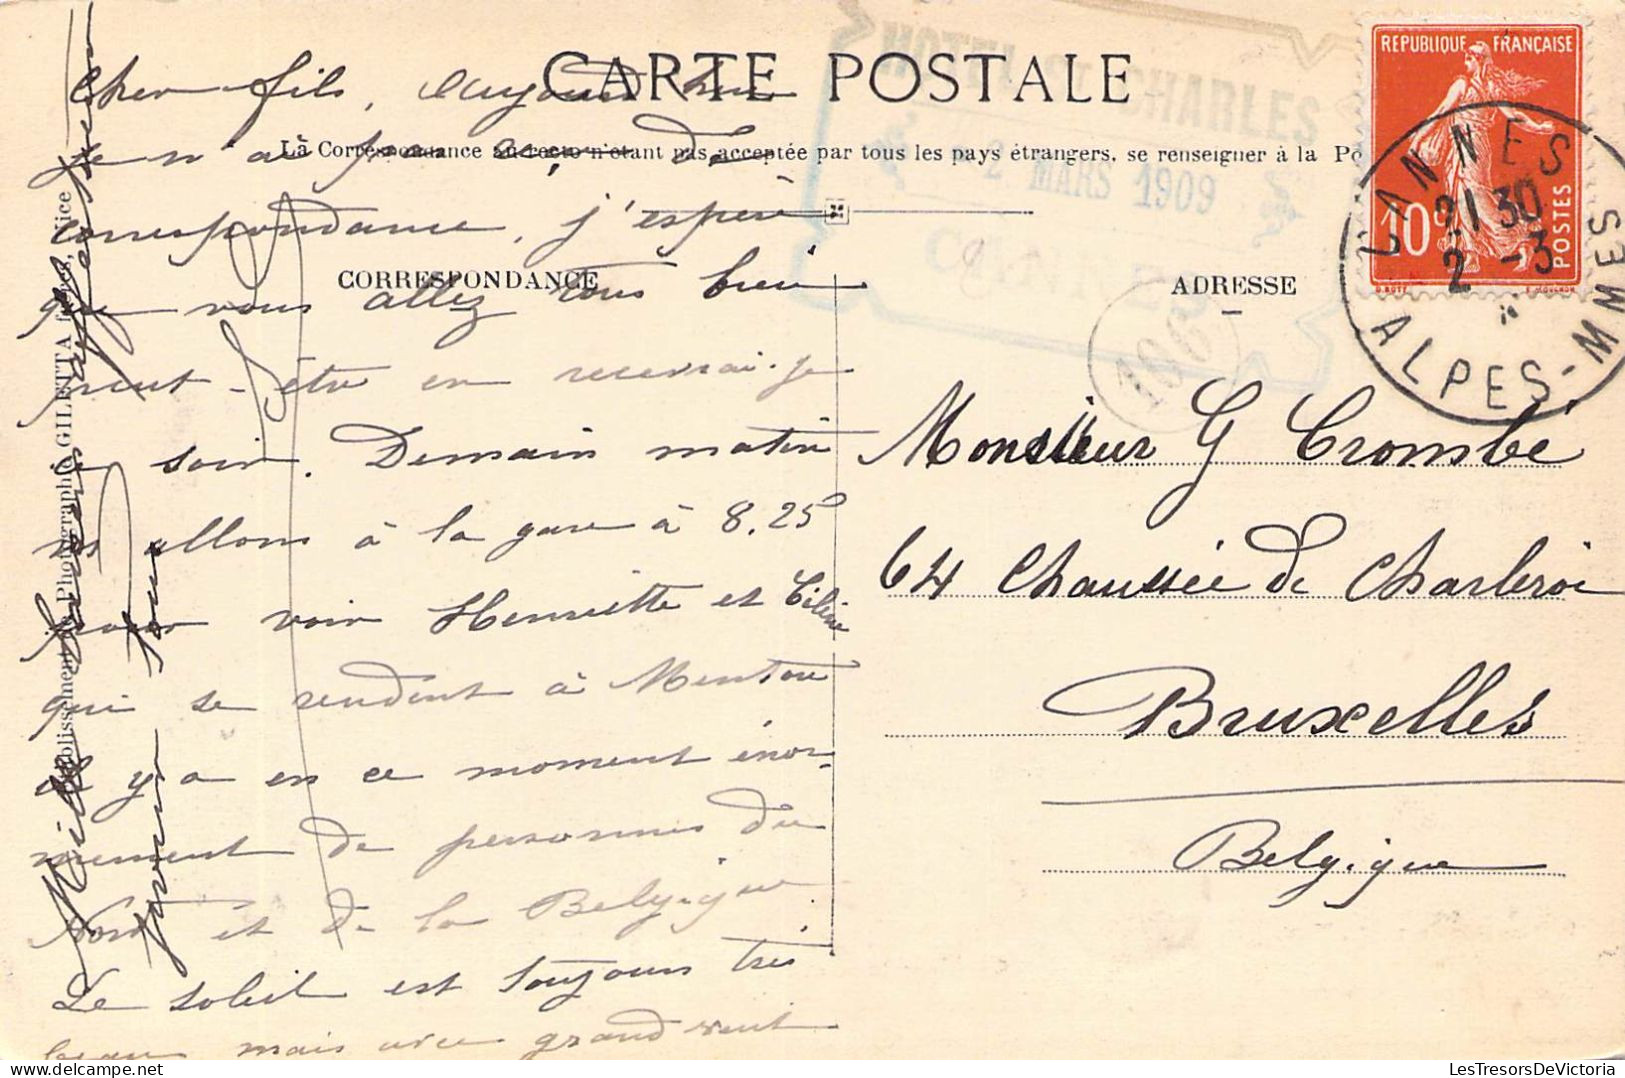 CARTE POSTALE
La Correspondance au recto n'étant pas acceptée par tous les pays étrangers, se renseigner à la Po
CORRESPONDANCE
ADRESSE
Cher fils, Aujourd'hui
je n'ai pas eu de
correspondance, j'espère
que vous allez tous bien
peut-être en recevrai-je
ce soir. Demain matin
ns allons à la gare à 8.25
pour voir Henriette et Céline
qui se rendent à Menton
il y a en ce moment énor-
mement de personnes du
Nord et de la Belgique
Le soleil est toujours très
beau mais avec grand vent
Mille
pour tous
Etablissement de Photographie GILETTA frères, Nice
HOTEL St CHARLES
2 MARS 1909
CANNES
REPUBLIQUE FRANÇAISE
10c
POSTES
CANNES
21 30
2 - 3
ALPES-MMES
186
Monsieur G Crombé
64 Chaussée de Charleroi
Bruxelles
Belgique
LesTresorsDeVictoria